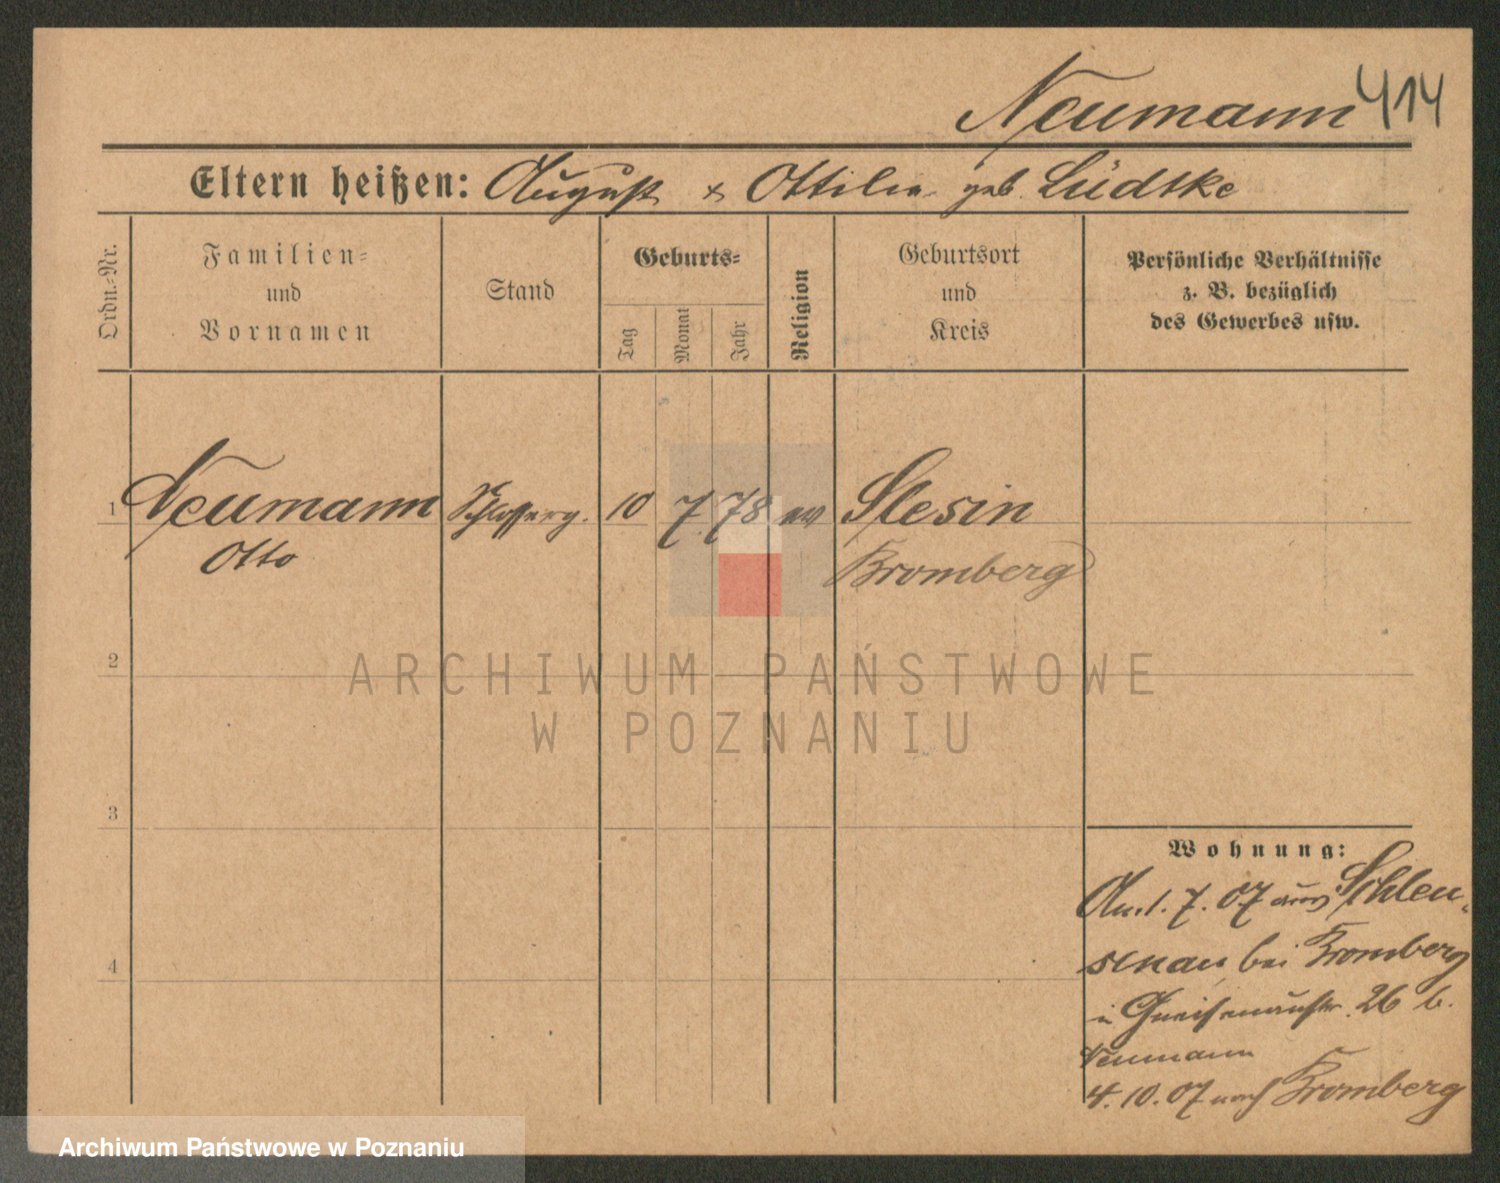 Neumann 414
Eltern heißen: August & Ottilie geb. Lüdtke
Ordn.-Nr.
Familien-
und
Vornamen
Stand
Geburts-
Tag
Monat
Jahr
Religion
Geburtsort
und
Kreis
Persönliche Verhältnisse
z. B. bezüglich
des Gewerbes usw.
1 Neumann Schlosserg. 10 7. 78 ev Slesin
Otto Bromberg
2
3
4
Wohnung:
An. 1. 7. 07 aus Schleu-
senau bei Bromberg
in Gneisenaustr. 26 b.
Neumann
4. 10. 07 nach Bromberg
ARCHIWUM PAŃSTWOWE
W POZNANIU
Archiwum Państwowe w Poznaniu